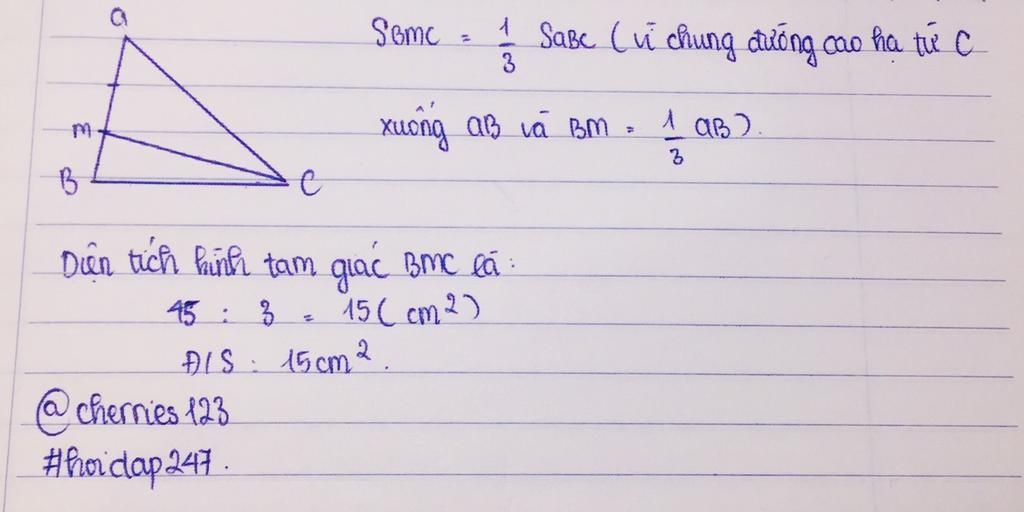 a
M
B
C
SBMC = 1/3 SaBC (vì chung đường cao hạ từ C
xuống aB và BM = 1/3 aB).
Diện tích hình tam giác BMC là:
45 : 3 = 15 (cm²)
Đ/S: 15cm².
@cherries123
#hoidap247.